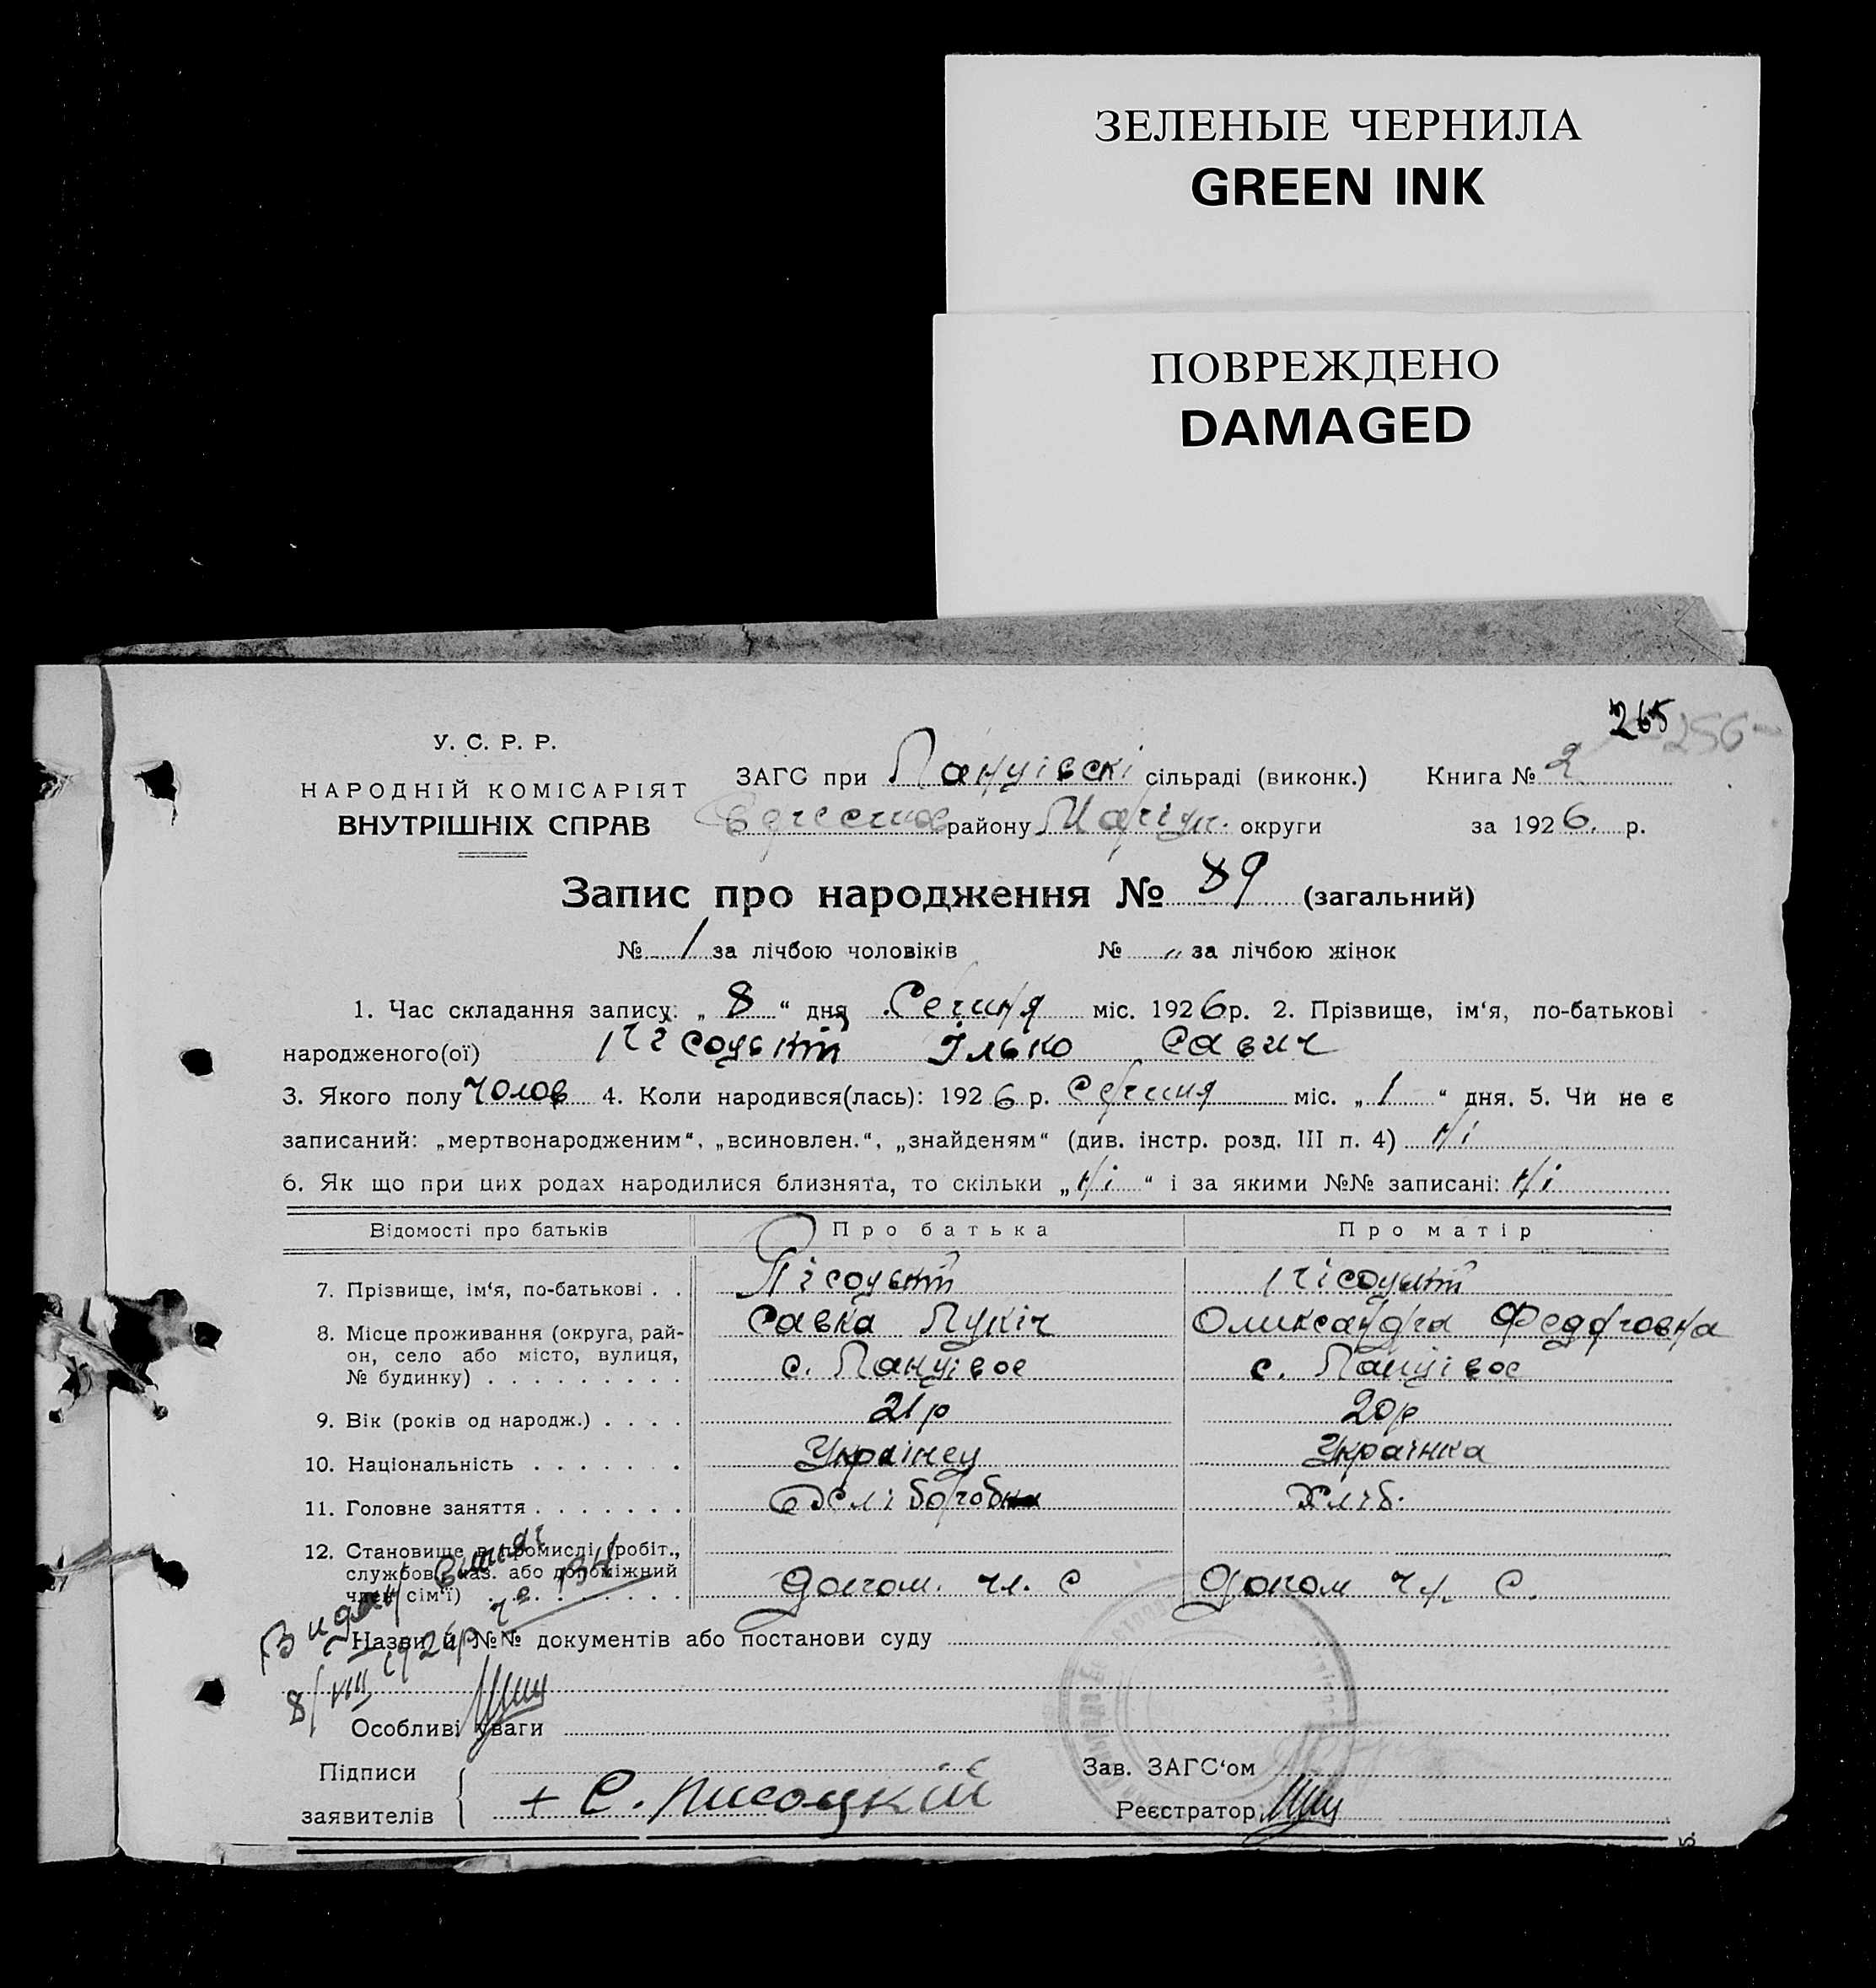 ЗЕЛЕНЫЕ ЧЕРНИЛА
GREEN INK
ПОВРЕЖДЕНО
DAMAGED
265
256
У. С. Р. Р.
НАРОДНІЙ КОМІСАРІЯТ
ВНУТРІШНІХ СПРАВ
ЗАГС при Панцівскі сільраді (виконк.) Книга № 2
району Маріуп. округи за 1926. р.
Запис про народження № 89 (загальний)
№ 1 за лічбою чоловіків № „ за лічбою жінок
1. Час складання запису: „ 8 “ дня Серпня міс. 1926 р. 2. Прізвище, ім‘я, по-батькові
народженого(ої) Пісоцькій Ілько Савич
3. Якого полу чолов 4. Коли народився(лась): 1926 р. Серпня міс. „ 1 “ дня. 5. Чи не є
записаний: „мертвонародженим“, „всиновлен.“, „знайденям“ (див. інстр. розд. III п. 4) ні
6. Як що при цих родах народилися близнята, то скільки „ ні “ і за якими №№ записані: ні
Відомості про батьків Про батька Про матір
7. Прізвище, ім‘я, по-батькові . . Пісоцькій Пісоцькій
Савка Лукіч Олександра Федоровна
8. Місце проживання (округа, рай-
он, село або місто, вулиця,
№ будинку) . . . . . . . . . с. Панцівое с. Панцівое
9. Вік (років од народж.) . . . . 21 р 20 р
10. Національність . . . . . . . Українец Українка
11. Головне заняття . . . . . . . Хліб.
12. Становище в промислі (робіт.,
службов., хаз. або допоміжний
член сім‘ї) . . . . . . . . . допом. чл. С допом чл. С.
Видан
8/VIII 1926 р
Назви й №№ документів або постанови суду
Особливі уваги
Підписи
заявителів + С. Писоцкій
Зав. ЗАГС‘ом
Реєстратор